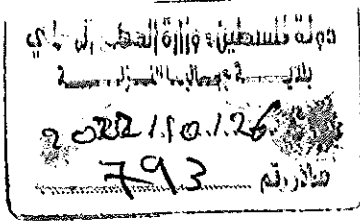 دولة فلسطين - وزارة الحكم المحلي
بلدية
2022/10/26
صادر رقم 793